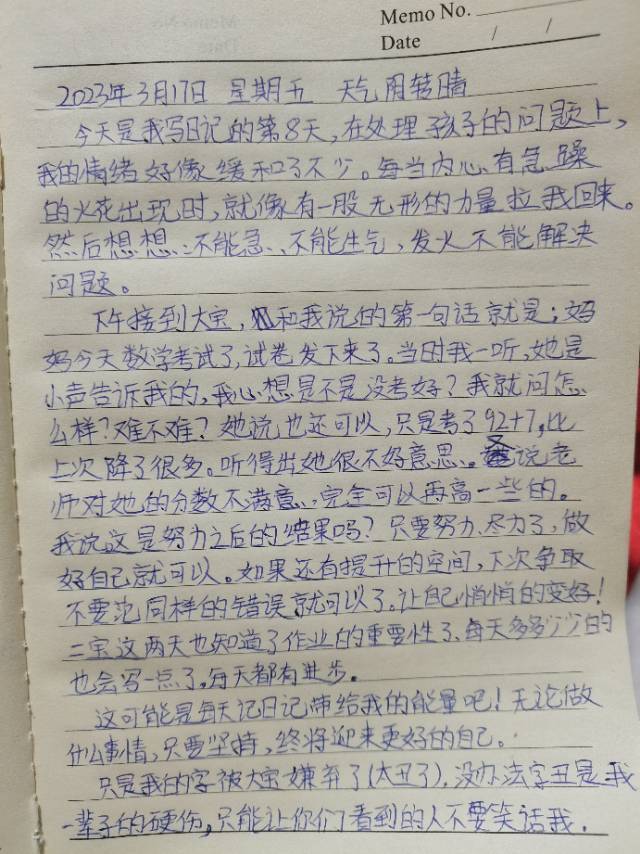 Memo No.
Date / /
2023年3月17日 星期五 天气阴转晴
今天是我写日记的第8天,在处理孩子的问题上,
我的情绪好像缓和了不少。每当内心有急躁
的火花出现时,就像有一股无形的力量拉我回来。
然后想想:不能急、不能生气,发火不能解决
问题。
下午接到大宝,和我说的第一句话就是;妈
妈今天数学考试了,试卷发下来了。当时我一听,她是
小声告诉我的,我心想是不是没考好?我就问怎
么样?难不难?她说也还可以,只是考了92+7,比
上次降了很多。听得出她很不好意思、说老
师对她的分数不满意、完全可以再高一些的。
我说这是努力之后的结果吗?只要努力、尽力了,做
好自己就可以。如果还有提升的空间,下次争取
不要犯同样的错误就可以了。让自己悄悄的变好!
二宝这两天也知道了作业的重要性了、每天多多少少的
也会写一点了。每天都有进步。
这可能是每天记日记带给我的能量吧!无论做
什么事情,只要坚持,终将迎来更好的自己。
只是我的字被大宝嫌弃了(太丑了),没办法字丑是我
一辈子的硬伤,只能让你们看到的人不要笑话我.